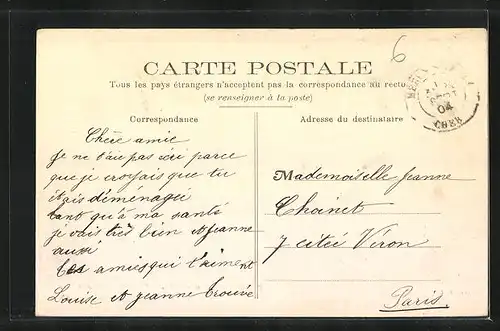 6
CARTE POSTALE
Tous les pays étrangers n'acceptent pas la correspondance au recto
(se renseigner à la poste)
Correspondance
Chère amie
Je ne t'ai pas écri parce
que je croyais que tu
étais déménagée
tant qu'à ma santé
je vais très bien et Jeanne
aussi
tes amies qui t'aiment
Louise et Jeanne Trouvé
Adresse du destinataire
04
CHER
Mademoiselle Jeanne
Choinet
7 citée Véron
Paris